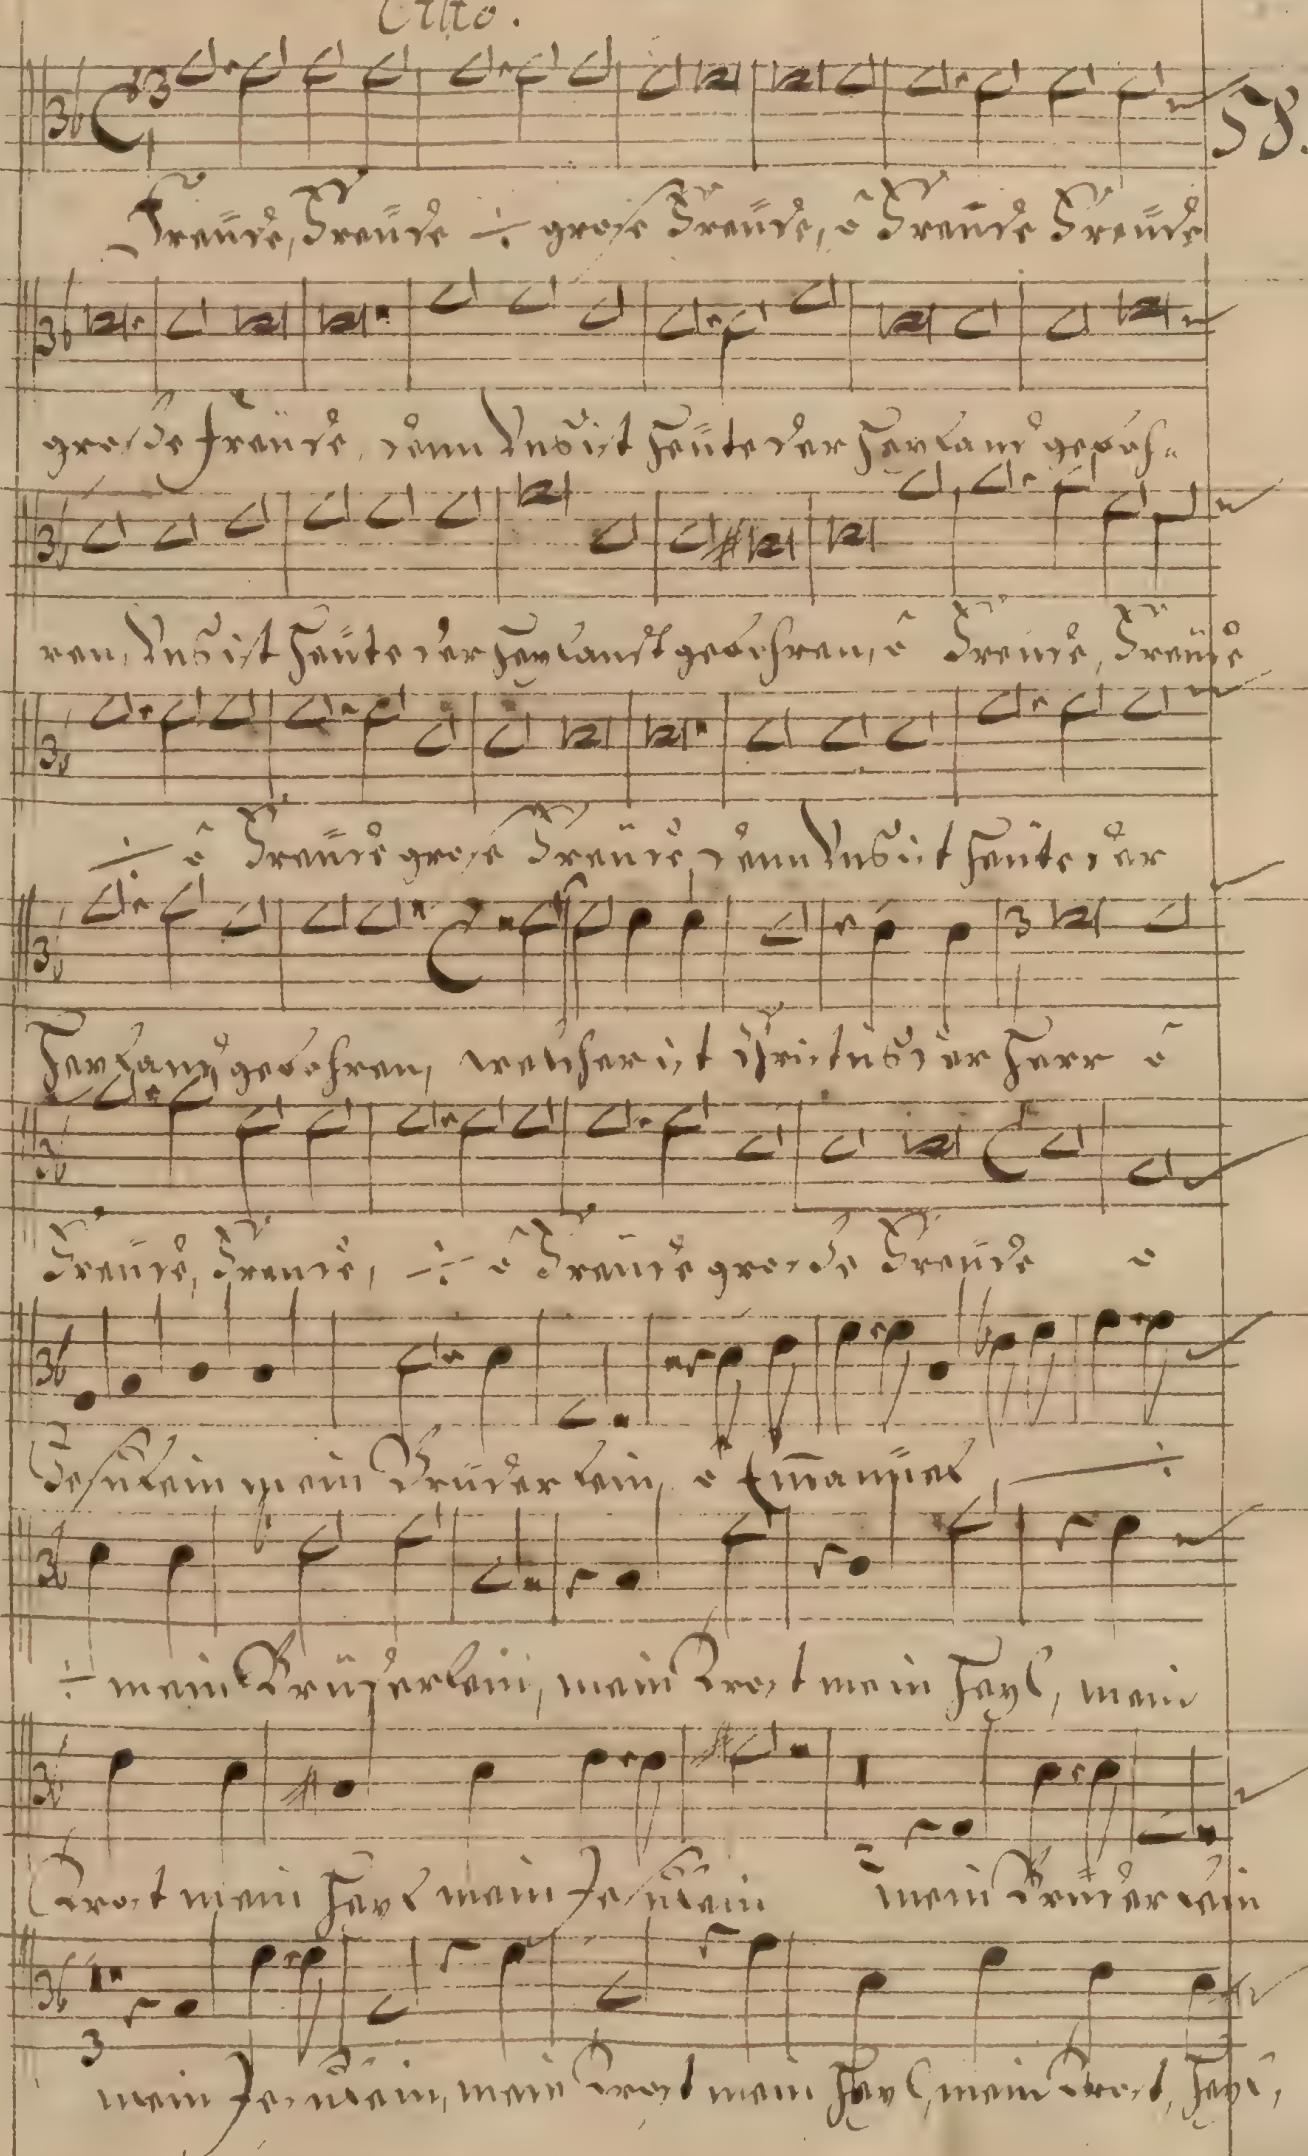 Alto.
58.
Freüde, Freüde ÷ grose Freüde, ô Freüde Freüde
grosse Freüde, denn Uns ist heüte der Heyland geboh=
ren, Uns ist heüte der Heylandt gebohren, ô Freüde, Freüde
÷ ô Freüde grose Freüde, denn Uns ist heüte der
Heyland gebohren, welcher ist Christus der Herr ô
Freüde, Freüde, ÷ ô Freüde grosse Freüde o
Jesulein mein Brüderlein, o Em̄anuel, ÷
÷ mein Brüderlein, mein Trost mein Heyl, mein
Trost mein Heyl mein Jesulein mein Brüderlein
mein Jesulein, mein Trost mein Heyl, mein Trost, Heyl,